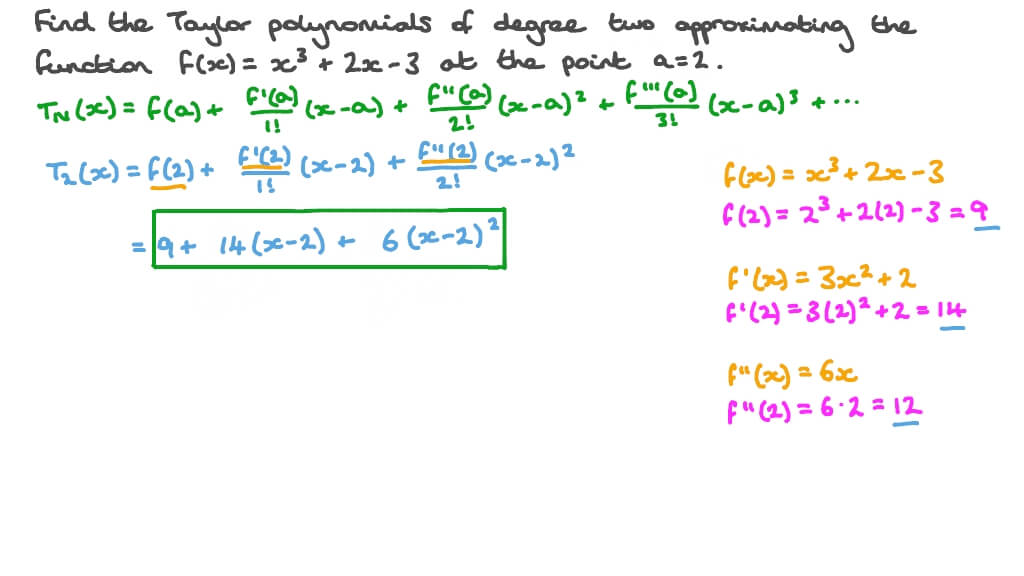 Find the Taylor polynomials of degree two approximating the
function f(x) = x³ + 2x - 3 at the point a = 2.
T_N(x) = f(a) + f'(a)/1! (x-a) + f''(a)/2! (x-a)² + f'''(a)/3! (x-a)³ + ...
T₂(x) = f(2) + f'(2)/1! (x-2) + f''(2)/2! (x-2)²
= 9 + 14(x-2) + 6(x-2)²
f(x) = x³ + 2x - 3
f(2) = 2³ + 2(2) - 3 = 9
f'(x) = 3x² + 2
f'(2) = 3(2)² + 2 = 14
f''(x) = 6x
f''(2) = 6·2 = 12